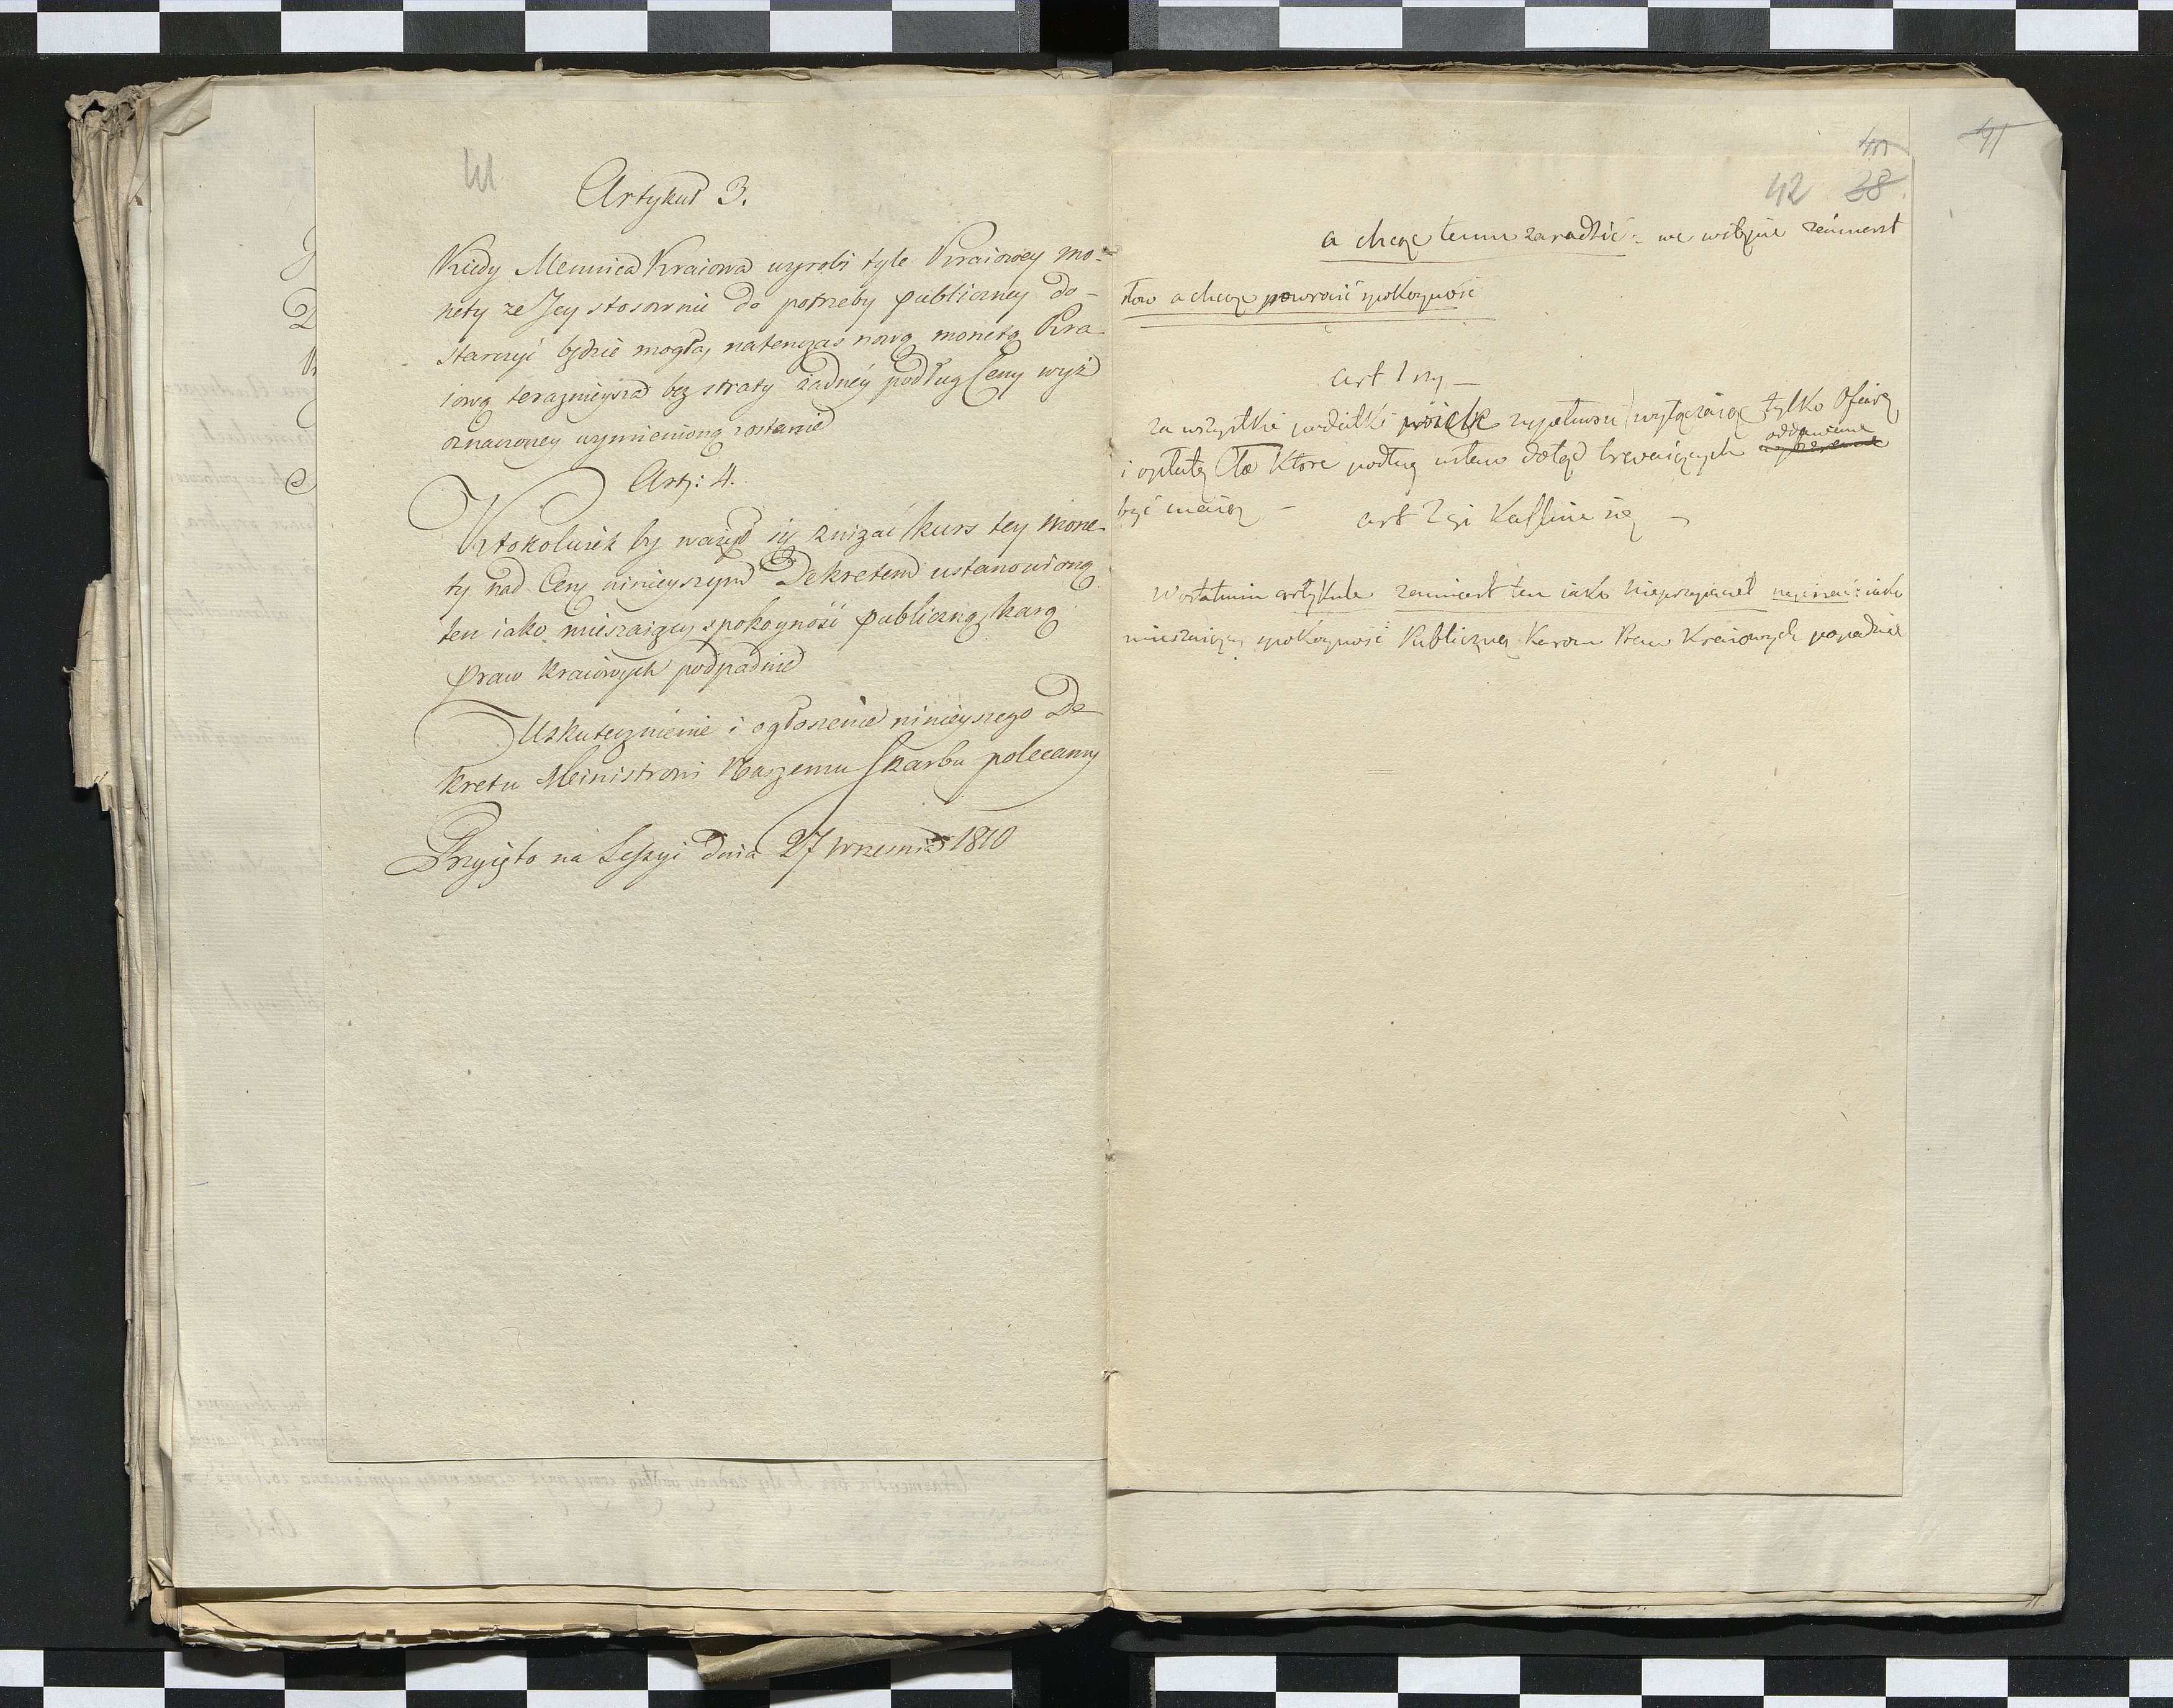 41
Artykuł 3.
Kiedy Mennica Kraiowa wyrobi tyle Kraiowey mo-
nety ze Jey stosownie do potrzeby publiczney do-
starczyć będzie mogła, natenczas nową monetą Kra
iową terazniejsza bez straty żadnéy podług Ceny wyż
oznaczoney wymienioną zostanie
Art: 4.
Ktokolwiek by ważył się zniżać kurs tey mone-
ty nad Cenę ninieyszym Dekretem ustanowioną
ten iako mieszaiący spokoyność publiczną, karą
praw kraiowych podpadnie
Uskutecznienie i ogłoszenie ninieyszego De
kretu Ministrowi Naszemu Skarbu polecamy
Przyięto na Sessyi dnia 27 Września 1810
41
42 38
a chcąc temu zaradzić: we wstępie zamiast
słow a chcąc powrócić spokoyność
art 1ny —
za wszystkie podatki w zupełności wyłączaiąc tylko Ofiarę
i opłatę Cła które podług ustaw dotąd trwaiących oddawane
być maią — art 2gi Kassuie się —
W ostatnim artykule zamiast ten iako nieprzyiaciel : iako
mieszaiący spokoyność Publiczną Karom Praw Kraiowych popadnie